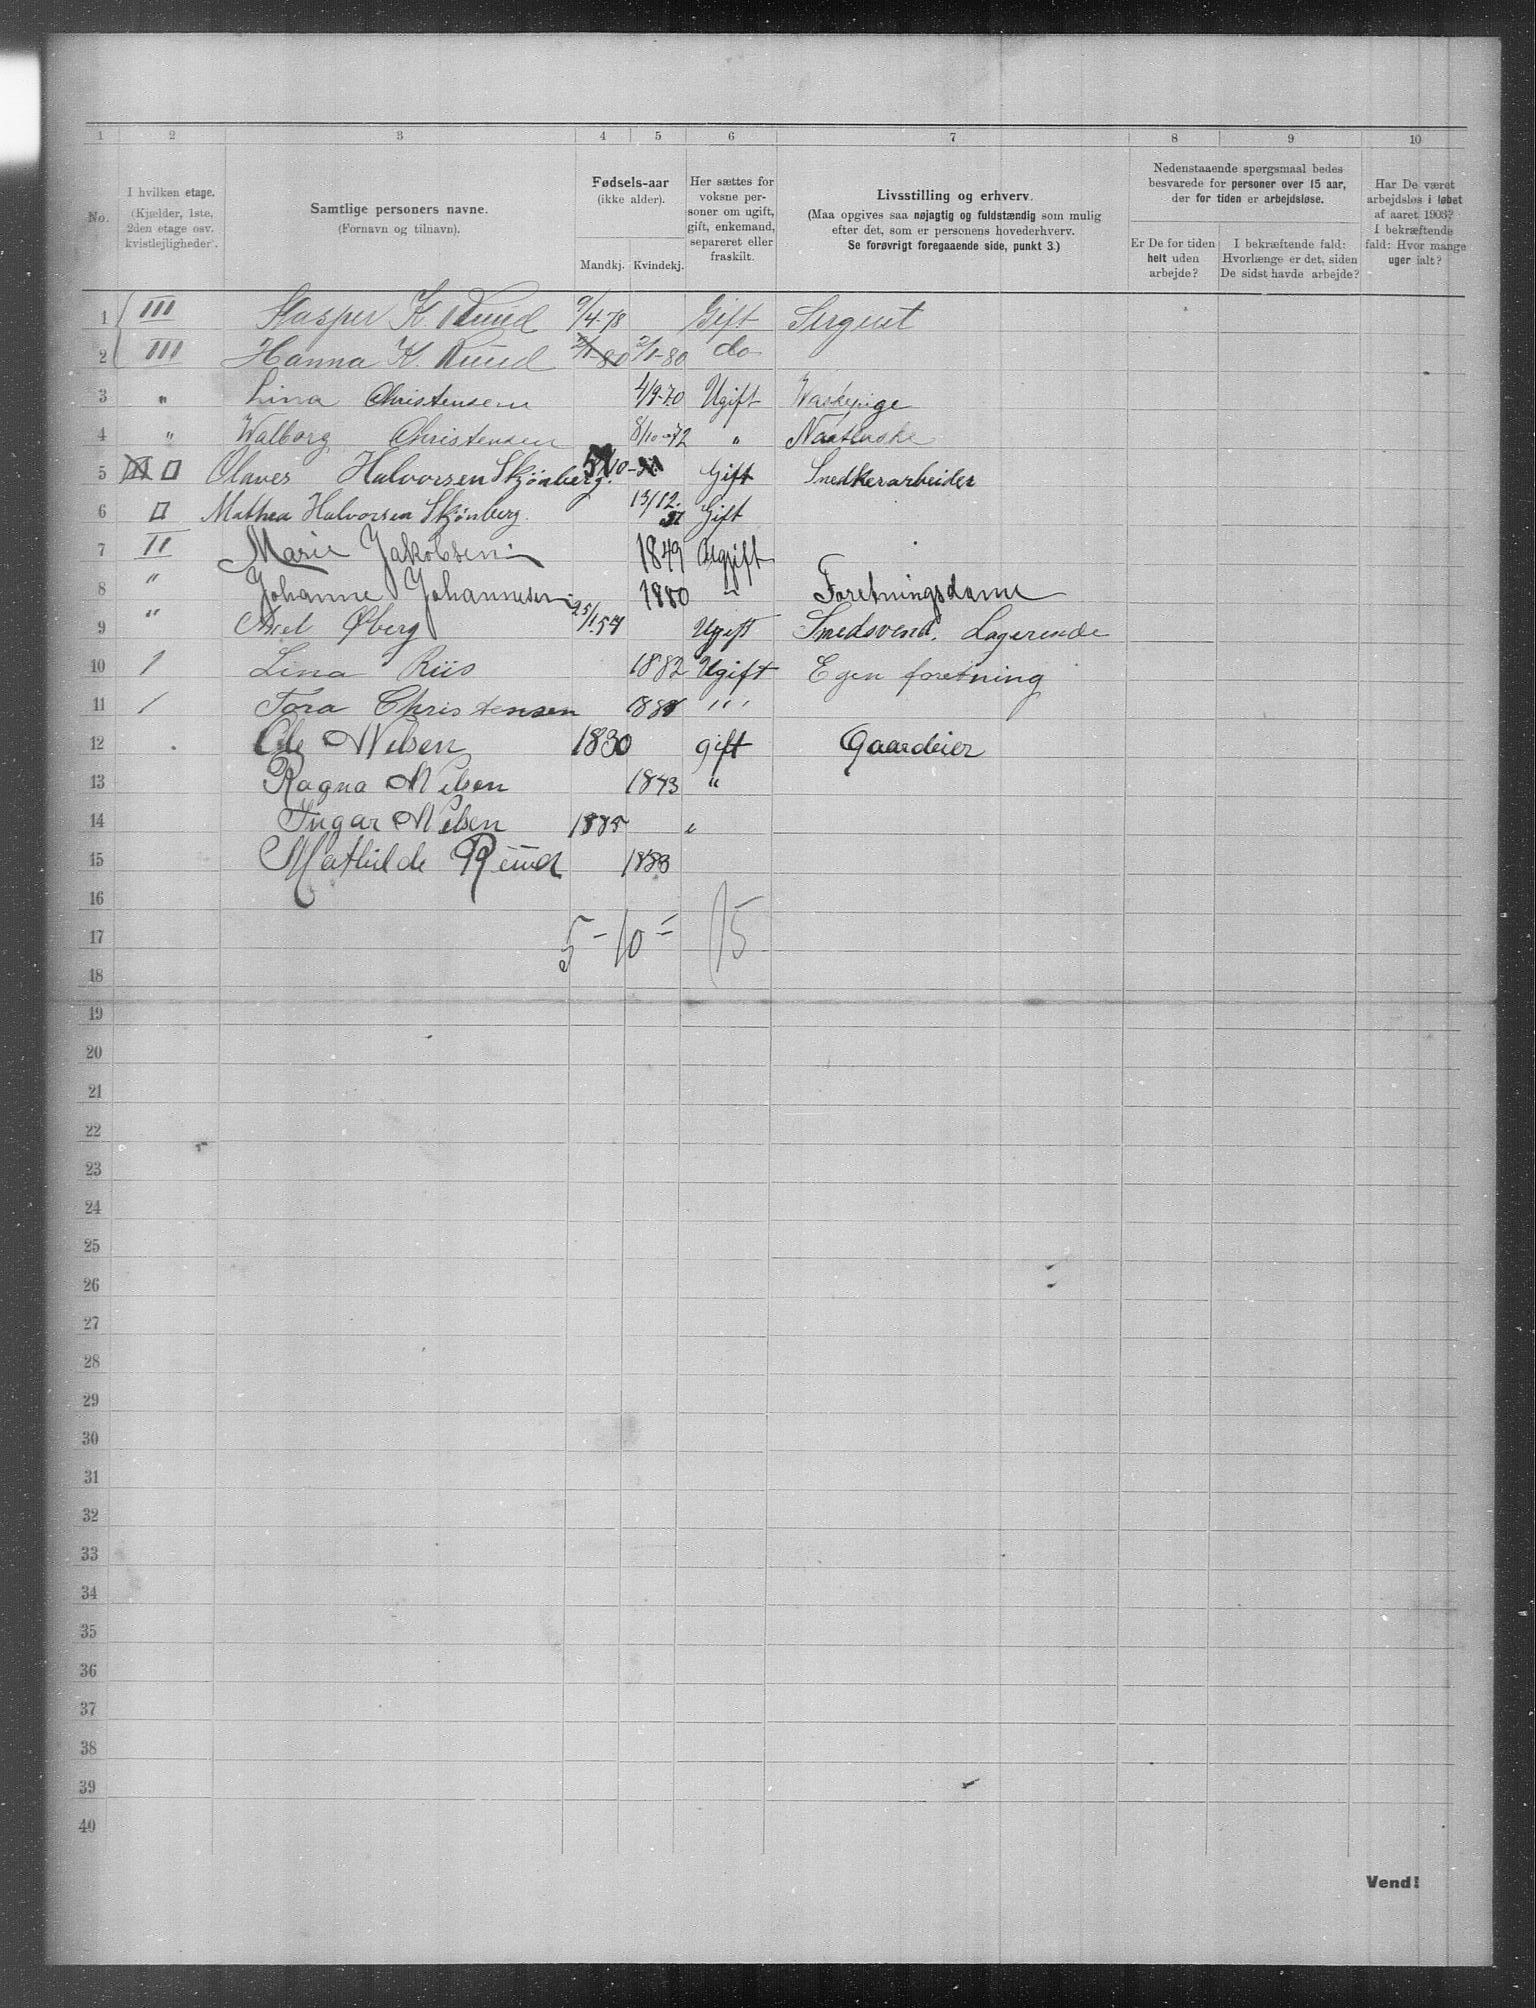 1 2 3 4 5 6 7 8 9 10
No.
I hvilken etage.
(Kjælder, 1ste,
2den etage osv.
kvistlejligheder).
Samtlige personers navne.
(Fornavn og tilnavn).
Fødsels-aar
(ikke alder).
Mandkj. Kvindekj.
Her sættes for
voksne per-
soner om ugift,
gift, enkemand,
separeret eller
fraskilt.
Livsstilling og erhverv.
(Maa opgives saa nøjagtig og fuldstændig som mulig
efter det, som er personens hovederhverv.
Se forøvrigt foregaaende side, punkt 3.)
Nedenstaaende spørgsmaal bedes
besvarede for personer over 15 aar,
der for tiden er arbejdsløse.
Er De for tiden
helt uden
arbejde?
I bekræftende fald:
Hvorlænge er det, siden
De sidst havde arbejde?
Har De været
arbejdsløs i løbet
af aaret 1903?
I bekræftende
fald: Hvor mange
uger ialt?
1 III Kasper K. Ruud 9/4-78 Gift Sergent
2 III Hanna K. Ruud 2/1-80 2/1-80 do
3 " Lina Christensen 4/9-70 Ugift
4 " Walborg Christensen 8/10-72 "
5 Olaves Halvorsen Skjønberg Gift Snedkerarbeider
6 Mathea Halvorsen Skjønberg. 13/12. Gift
7 II Marie Jakobsen 1849 Ugift
8 " Johanne Johannesen 1880 " Forretningsdame
9 " Axel Øberg 25/1 54 Ugift Snedsvend. Logerende
10 I Lina Riis 1882 Ugift Egen foretning
11 I Tora Christensen " "
12 Ole Nilsen 1830 gift Gaardeier
13 Ragna Nilsen 1843 "
14 Ingar Nilsen 1885 "
15 Mathilde Ruud 1883
16
17 5 - 10 = 15
18
19
20
21
22
23
24
25
26
27
28
29
30
31
32
33
34
35
36
37
38
39
40
Vend!